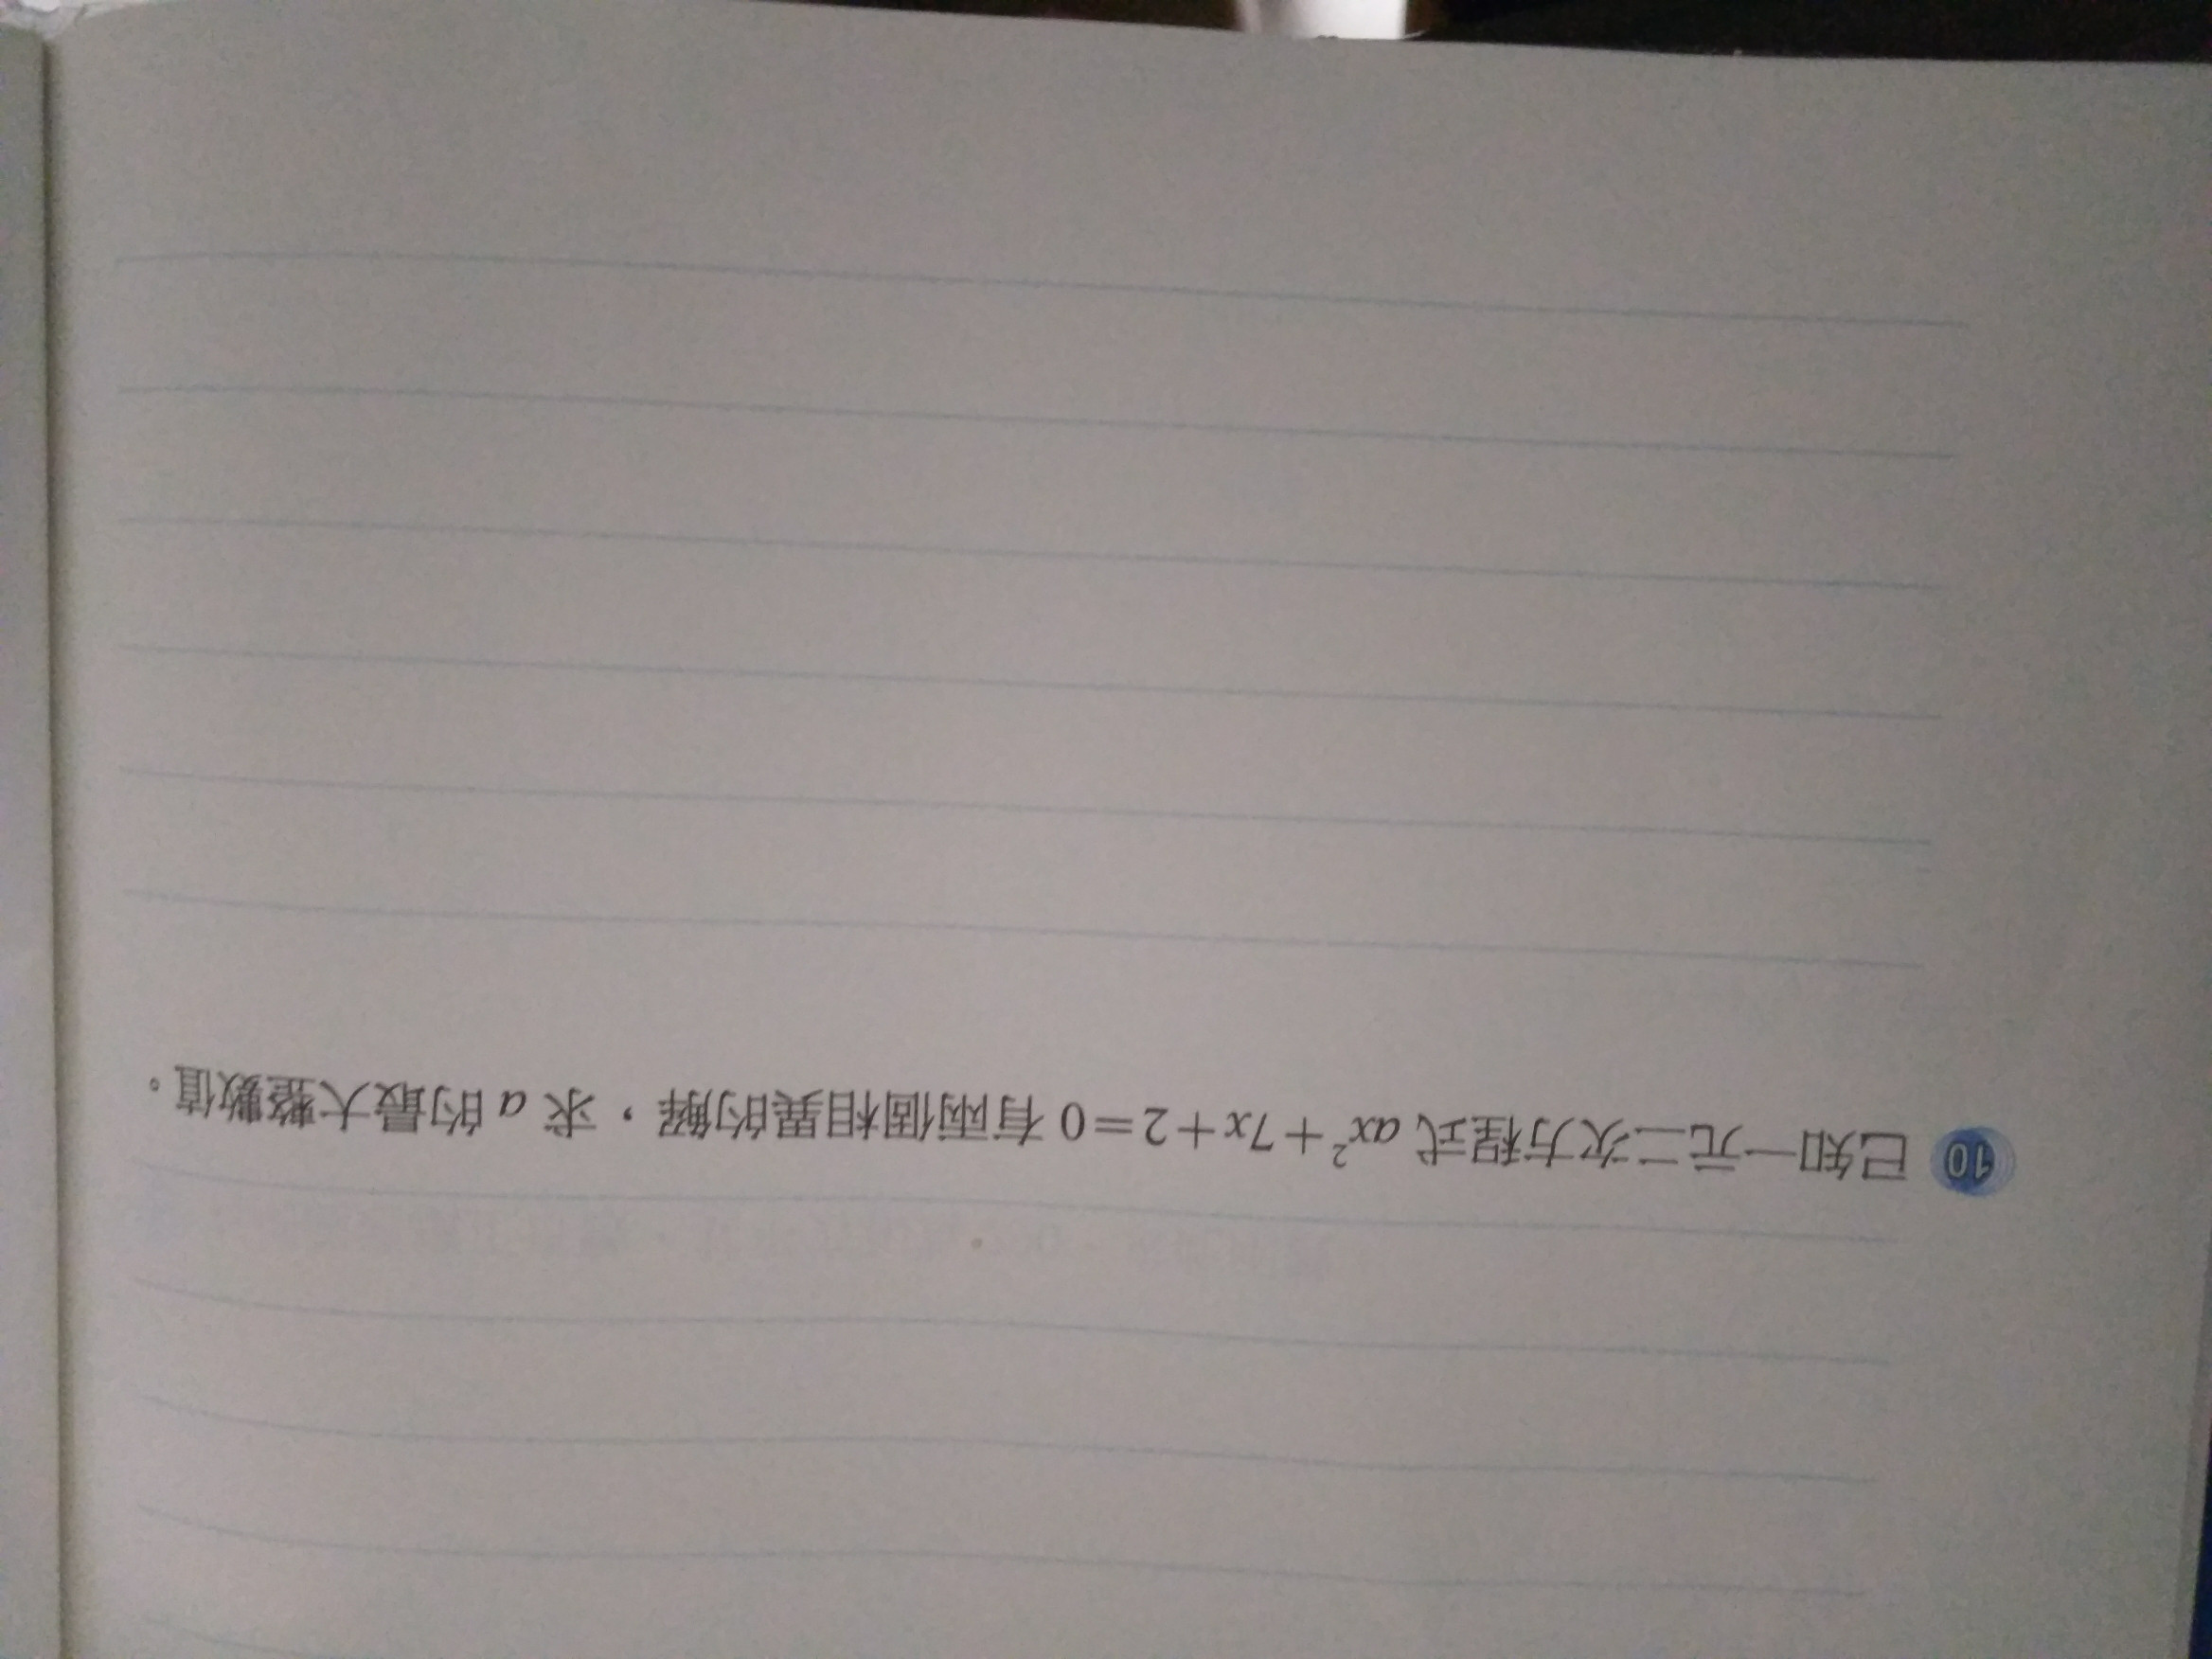 10 已知一元二次方程式 ax²+7x+2=0 有兩個相異的解，求 a 的最大整數值。